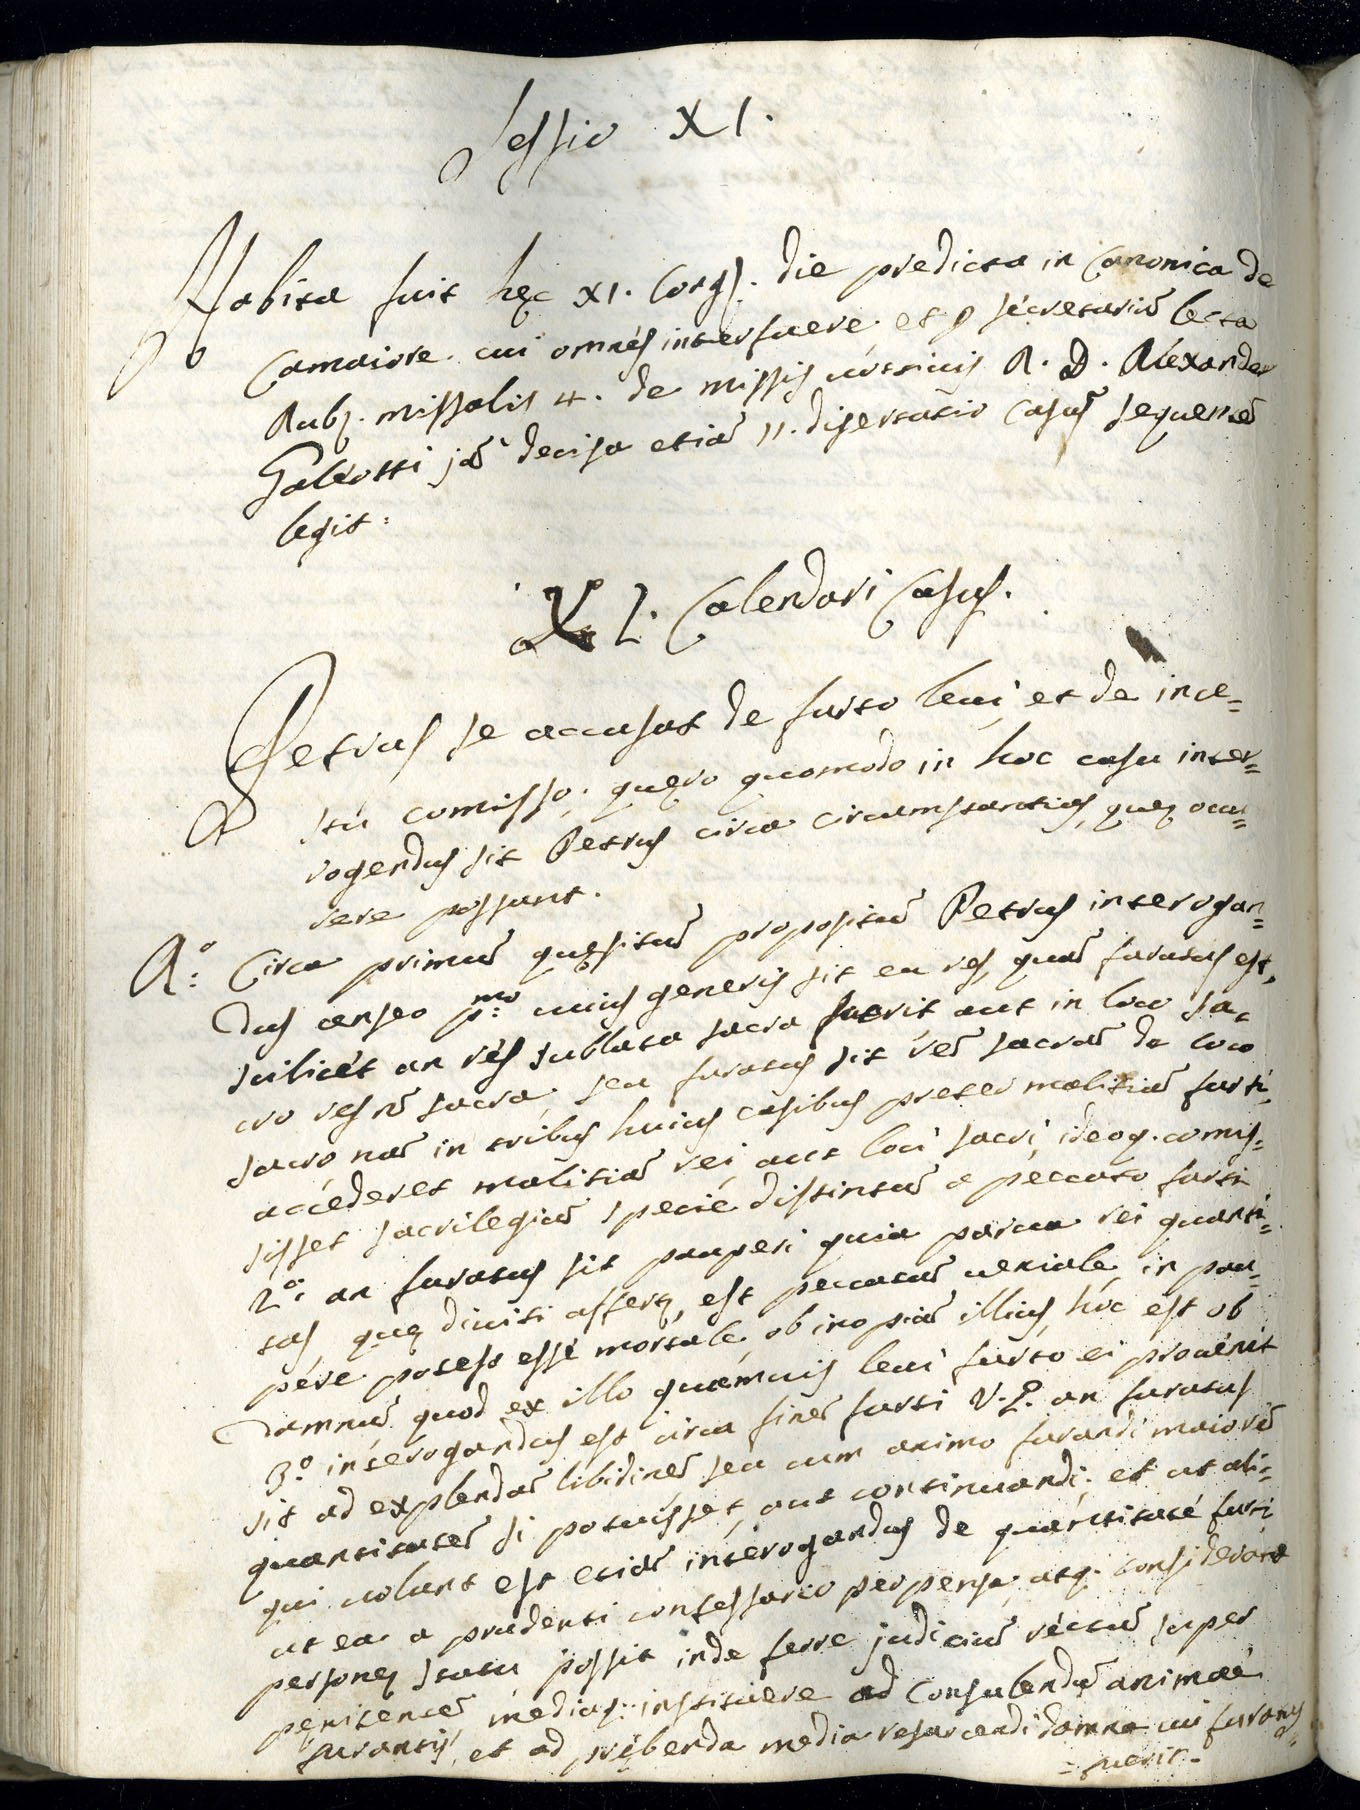 Sessio XI.
Habita fuit hęc XI. Congs. die predicta in Canonica de
Camaiore. cui omnes interfuere, et p secretariū lecta
Rubs. missalis 4. de missis uotiuis R. D. Alexander
Galeotti jā decisa etiā 11. disertatio Casūs sequentē
legit:
XI. Calendari Casus.
Petrus se accusat de furto leui, et de ince=
stu comisso. quęro quomodo in hoc casu inter=
rogendus sit Petrus circa circumstantias, quę ocu=
rere possunt.
R.º Circa primū quęsitū propositū Petrus interogan=
dus censeo p.mo cuius generis sit ea res, quā furatus est,
scilicet an res sublata sacra fuerit aut in loco sa=
cro res nō sacra, seu furatus sit rē sacrā de loco
sacro nā in tribus huius casibus preter malitiā furti,
accederet malitiā rei, aut loci sacri, ideoq. comis=
sisset sacrilegiū specie distinctū a peccato furti
2.º an furatus sit pauperi quia parua rei quanti=
tas, quę diuiti affertę, est peccatū ueniale, in pau=
pere potest esse mortale, ob inopiā illius, hoc est ob
damnū quod ex illo quamuis leui furto ei prouenit
3.º interogandus est circa finē furti V. g. an furatus
sit ad explendā libidinē seu cum animo furandi maiorē
quantitatē si potuisset, aut continuandi, et ut ali=
qui uolunt est etiā interogandus de quantitate furti
ut ea a prudenti confessario perpensa, atq. considerato
personę statu possit inde ferre judiciū rectū super
penitentē, mediaq. instituere ad consulendū animae
furantis, et ad prębenda media resarcendi damna cui furatus
= fuerit =